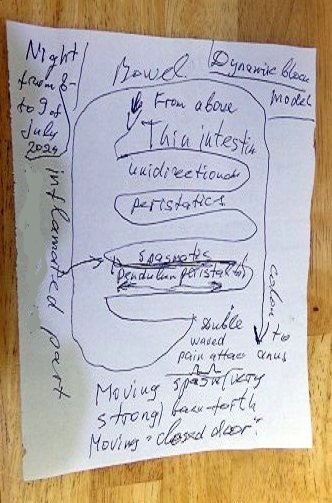 Night
from 8-
to 9 of
july
2024
Bowel
Dynamic block
model
From above
Thin intestin
unidirectional
peristatics
inflamated part
spasmatic
pendular peristaltics
colon
to
anus
double
waved
pain attacs
Moving spasm/very
strong/back-forth
Moving "closed door".